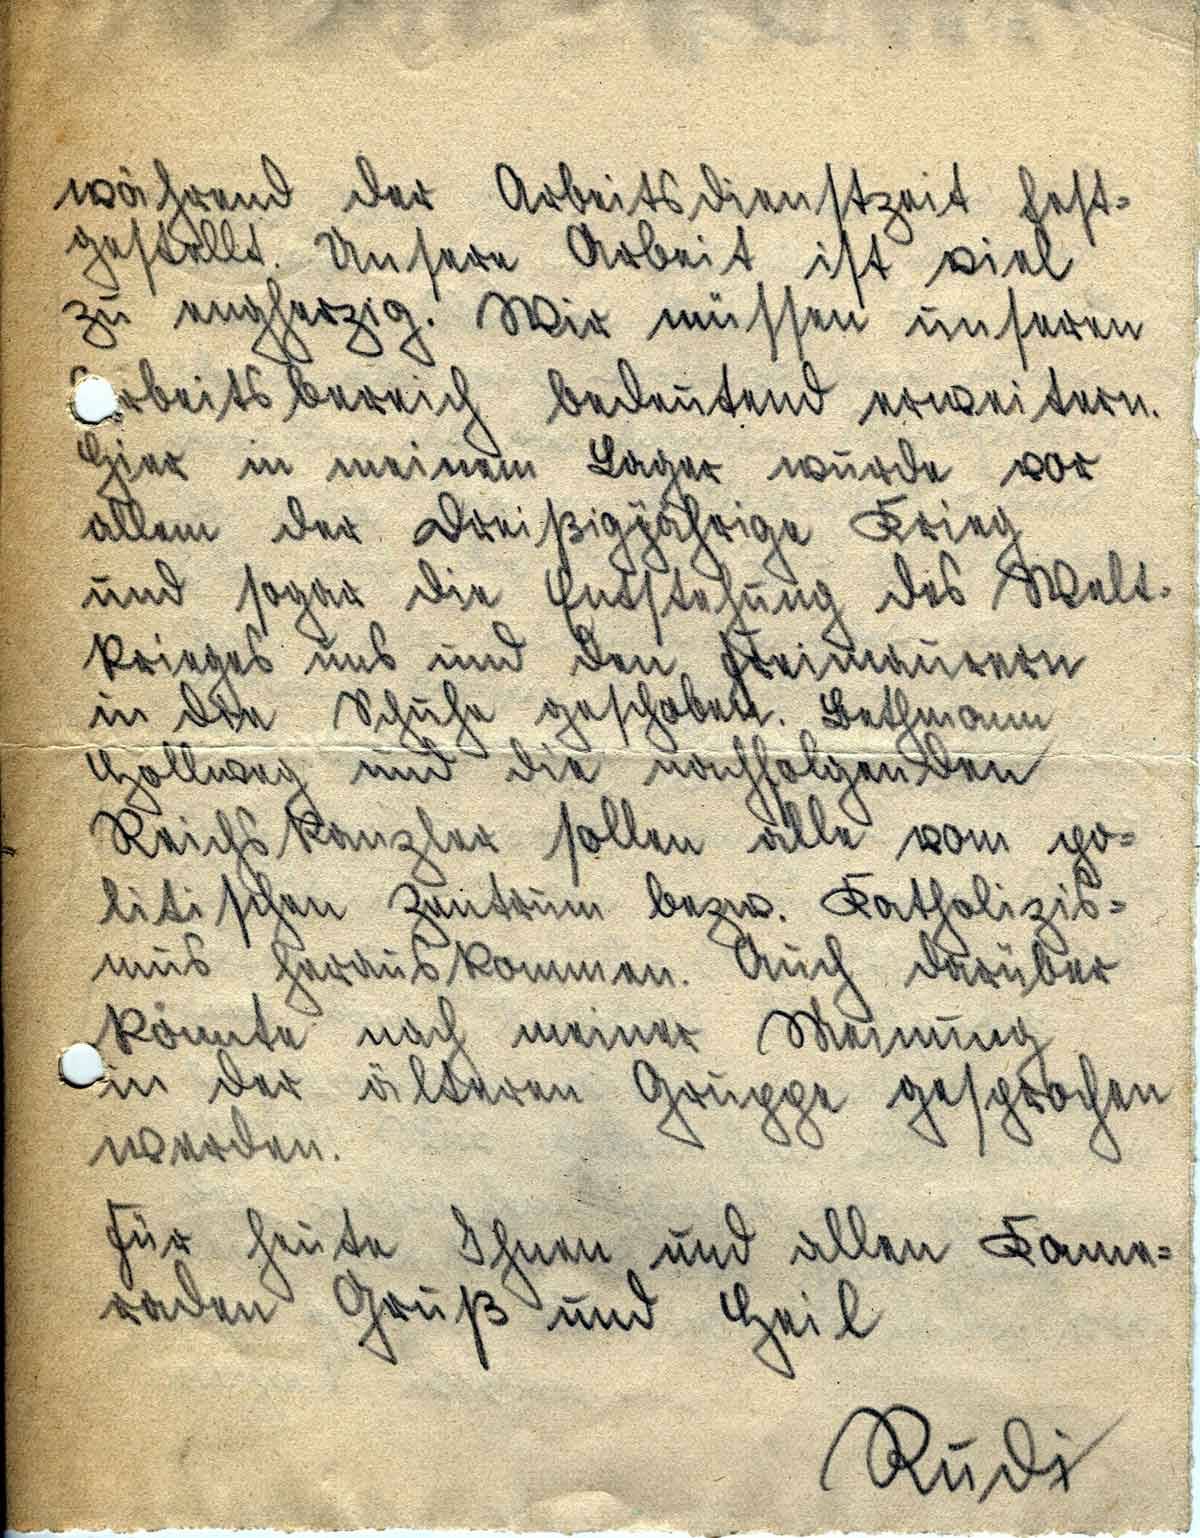 während der Arbeitsdienstzeit fest=
gestellt. Unsere Arbeit ist viel
zu engherzig. Wir müssen unseren
Arbeitsbereich bedeutend erweitern.
Hier in meinem Lager wurde vor
allem der Dreißigjährige Krieg
und sogar die Entstehung des Welt=
krieges uns und den Freimaurern
in die Schuhe geschoben. Bethmann
Hollweg und die nachfolgenden
Reichskanzler sollen alle vom po=
litischen Zentrum bezw. Katholizis=
mus herauskommen. Auch darüber
könnte nach meiner Meinung
in der älteren Gruppe gesprochen
werden.
Für heute Ihnen und allen Kame=
raden Gruß und Heil
Rudi